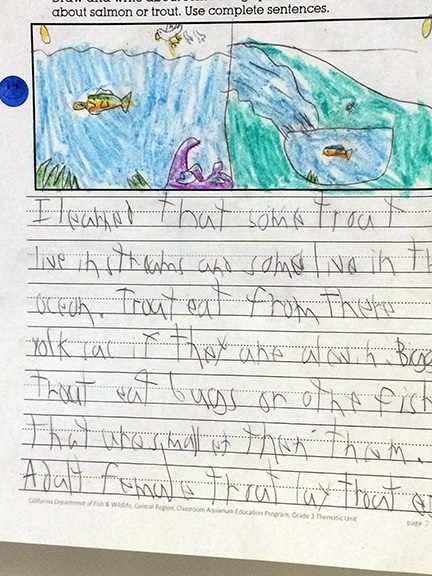 about salmon or trout. Use complete sentences.
I learned that some trout
live in streams and some live in th
ocean. Trout eat from there
yolk sac if they are alevin. Bigg
Trout eat bugs or othe fish
that are smaller then them.
Adult female trout lay trout eg
California Department of Fish & Wildlife, Central Region, Classroom Aquarium Education Program, Grade 2 Thematic Unit
page 7